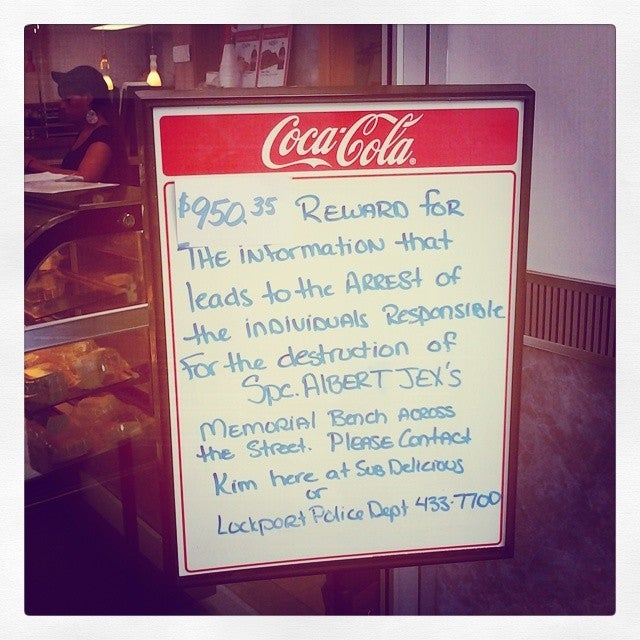 Coca-Cola
$950.35 REWARD foR
THE iNfoRmATiON that
leads to the ARREST of
the iNDiViDUAls Responsible
FOR the destruction of
Spc. AlBERT JEX'S
MEMORIAl Bench ACROSS
the Street. PlEASE Contact
Kim here at SUB DEliCiOUS
or
LOCKPORT Police Dept 433-7700